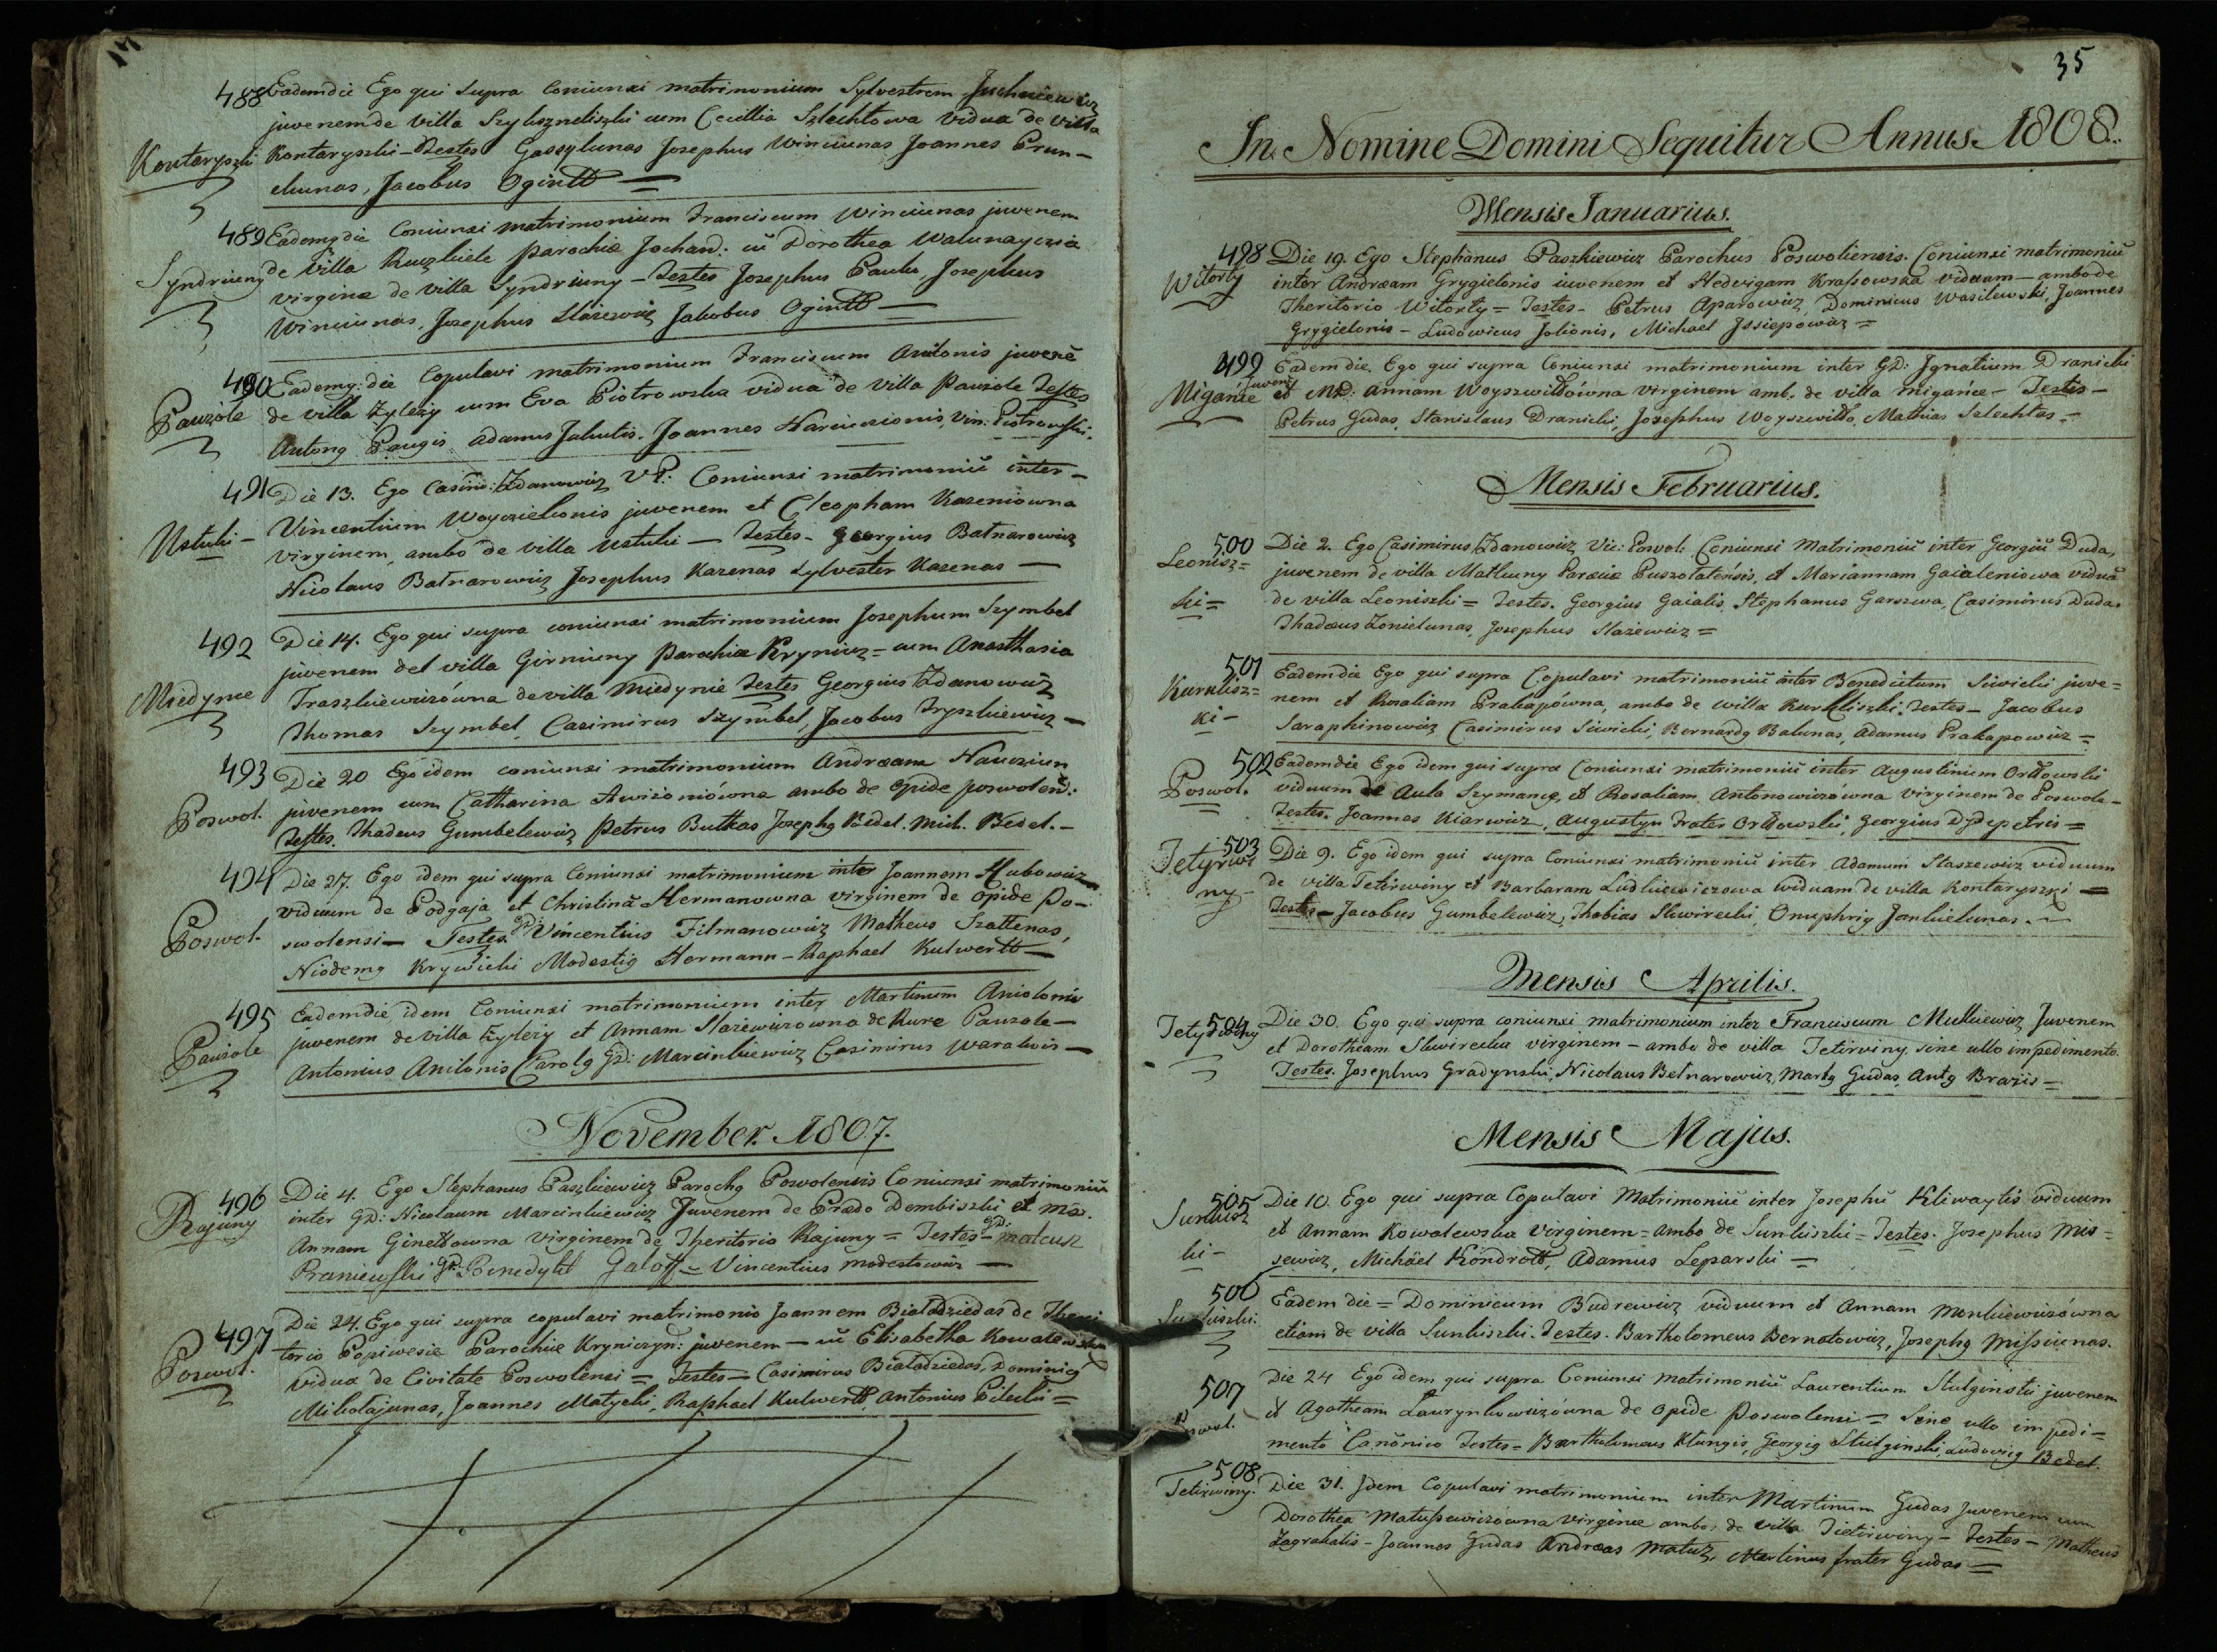 17
488 Eademdie Ego qui supra Coniunxi matrimonium Sylvestrem Juchniewicz
juvenem de villa Szykszneliszki cum Cecillia Szlechtowa vidua de villa
Kontaryszki
Kontaryszki – Testes Gassylunas Josephus Winciunas Joannes Prun-
ckunas, Jacobus Ogintt =
489 Eademq die Coniunxi matrimonium Franciscum Winciunas juvenem
Syndriuny
de villa Kuczkiele Parochiæ Jochan̄d: cū Dorothea Walunayczia
virginæ de villa Syndriuny – Testes Josephus Paulu, Josephus
Winciunas, Josephus Stasewicz Jakobus Ogintt –
490 Eademq: die Copulavi matrimonium Franciscum Anilonis juvenē
Pauzole
de villa Zyleży cum Eva Piotrowska vidua de villa Pauzole Testes
Antong Paugis Adamus Jakutis, Joannes Narciszionis, Vin: Piotrowski.
491 Die 13. Ego Casim: Zdanowicz V P: Coniunxi matrimoniū inter –
Ustuki –
Vincentium Woyczielionis juvenem et Cleopham Kazeniowna
virginem, ambo de villa Ustuki – Testes – Georgius Batnarowicz
Nicolaus Batnarowicz Josephus Kazenas Sylvester Kazenas –
492 Die 14. Ego qui supra coniunxi matrimonium Josephum Szymbel
juvenem de villa Girniuny Parochiæ Krynicz = cum Anasthasia
Miedynie
Traszkiewiczówna de villa Miedynie Testes Georgius Zdanowicz
Thomas Szymbel, Casimirus Szymbel, Jacobus Tryszkiewicz –
493 Die 20 Ego idem coniunxi matrimonium Andræam Nauczion
Poswol.
juvenem cum Catharina Awiżoniówna ambo de Opide poswoleñ:
Testes. Thadeus Gumbelewicz Petrus Butkas Josephg Bedel. Mich. Bedel. –
494 Die 27. Ego idem qui supra Coniunxi matrimonium inter Joannem Hubowicz
Poswol.
viduum de Podgaja et Christinā Hermanowna virginem de Opide Po-
swolensi – Testes GD: Vincentius Filmanowicz Matheus Szattenas,
Nicodemg Krywicki Modestig Hermann – Raphael Kulwertt –
495 Eademdie, idem Coniunxi matrimonium inter Martinum Aniolonis
Pauzole
juvenem de villa Zyleży et Annam Stażewiczowna de Rure Pauzole –
Antonius Anilonis Carolg GD: Marcinkiewicz Casimirus Waralwis –
November. 1807.
496 Die 4. Ego Stephanus Paszkiewicz Parochg Poswolensis Coniunxi matrimoniū
Rajuny
inter GD: Nicolaum Marcinkiewicz Juvenem de Prædo Dembiszki et Mā.
Annam Ginettowna Virginem de Theritorio Rajuny = Testes – GD: Mateusz
Praniewski GD: Benedykt Gatoff = Vincentius Modestowicz –
497 Die 24. Ego qui supra copulavi matrimonio Joannem Białodziedas de Theri
Poswol.
torio Popiwesie Parochiæ Kryniczyn: juvenem – cū Elisabetha Kowalewska
vidua de Civitate Poswolensi = Testes = Casimirus Białodziedas, Dominicg
Mikołajunas, Joannes Matycki, Raphael Kulwertt, Antonius Pilecki =
35
In Nomine Domini Sequitur Annus. 1808.
Mensis Ianuarius.
498 Die 19. Ego Stephanus Paszkiewicz Parochus Poswoliensis. Coniunxi matrimoniū
Witorty
inter Andræam Grygielonis iuvenem et Hedvigam Krassowska viduam – ambo de
Theritorio Witorty = Testes – Petrus Aparowicz, Dominicus Wasilewski, Joannes
Grygielonis – Ludowicus Jolionis, Michael Jósiepowicz =
499 Eadem die, Ego qui supra Coniunxi matrimonium inter GD: Jgnatium Dranicki
Migańce
juvenē et MD: Annam Woyszwiłłówna virginem amb. de villa Migańce – Testes –
Petrus Gudas, Stanislaus Dranicki, Josephus Woyszwiłło, Mathias Szlechtas =
Mensis Februarius.
500 Die 2. Ego Casimirus Zdanowicz, Vic: Poswol: Coniunxi Matrimoniū inter Georgiū Duda,
Leonisz=
juvenem de villa Matkuny Paræciæ Puszołateńsis, et Mariannam Gaialeniowa viduā
ki =
de villa Leoniszki = Testes. Georgius Gaialis, Stephanus Garszwa, Casimirus Dudas
Thadæus Zonielunas, Josephus Stażewicz =
501 Eademdie Ego qui supra Copulavi matrimoniū inter Benedictum Siwicki juve=
Kurklisz=
ki –
nem et Rosaliam Prakapówna, ambo de villa Kurkliszki. Testes – Jacobus
Saraphinowicz Casimirus Siwicki, Bernardg Balunas, Adamus Prakapowicz =
502 Eademdie Ego idem qui supra Coniunxi matrimoniū inter Augustinum Orłłowski
Poswol.
viduum de Aula Szymańce, et Rosaliam Antonowiczówna virginem de Poswole –
Testes. Joannes Kiarwicz, Augustyn Frater Orłłowski, Georgius Dziepetris =
503 Die 9. Ego idem qui supra Coniunxi matrimoniū inter Adamum Staszewicz viduum
Tetyrwi
ny –
de villa Tetirwiny et Barbaram Ludkiewiczowa widuam de villa Kontaryszki =
Testes – Jacobus Gumbelewicz, Thobias Skwirecki, Onuphrig Jankielunas. –
Mensis Aprilis.
504 Die 30. Ego qui supra coniunxi matrimonium inter Franciscum Mulkiewicz Juvenem
Tetyrwiny
et Dorotheam Skwirecka virginem – ambo de villa Tetirviny, sine ullo impedimento.
Testes. Josephus Gradynski, Nicolaus Betnarowicz, Martg Gudas, Antg Brazis =
Mensis Majus.
505 Die 10. Ego qui supra Copulavi Matrimoniū inter Josephū Kliwaytis viduum
Sunkisz
ki –
et Annam Kowalewska Virginem = ambo de Sunkiszki = Testes. Josephus Mis=
sewicz, Michäel Kondrott, Adamus Leparski =
506 Eadem die = Dominicum Budrewicz viduum et Annam Monkiewiczówna
Sunkiszki.
etiam de villa Sunkiszki. Testes. Bartholomeus Bernatowicz, Josephg Missiunas.
507 Die 24 Ego idem qui supra Coniunxi Matrimoniū Laurentium Stulginski juvenem
Poswol.
et Agatheam Laurynkowiczówna de Opide Poswolensi = Sine ullo impedi=
mento Canōnico Testes = Bartholomeus Klungis, Georgig Stulginski, Ludovicg Bedel.
508 Die 31. Jdem Copulavi matrimonium inter Martinum Gudas Juvenem cum
Tetirwiny.
Dorothea Matussewiczówna virginæ ambo, de villa Tietirwiny – Testes – Matheus
Zagrakalis – Joannes Gudas Andræas Matuz, Martinus frater Gudas =